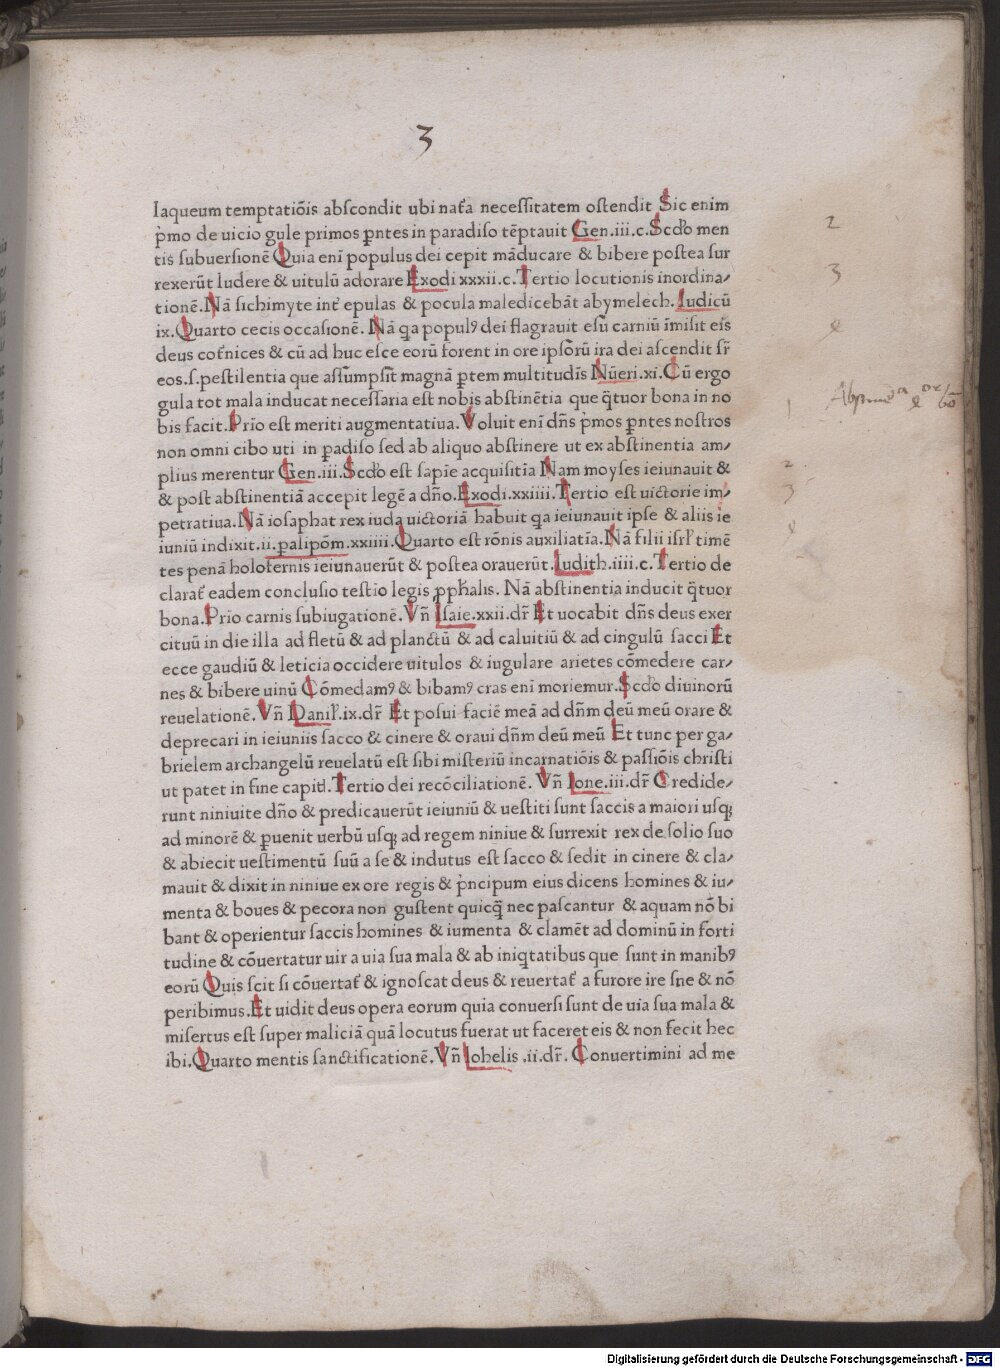 3
laqueum temptatiōis abscondit ubi nat̃a necessitatem ostendit Sic enim
p̓mo de uicio gule primos p̱ntes in paradiso tēptauit Gen.iii.c.Scd̓o men
tis subuersionē Quia eni populus dei cepit māducare & bibere postea sur
rexerūt ludere & uitulū adorare Exodi xxxii.c.Tertio locutionis inordina⸗
tionē.Nā sichimyte int̓ epulas & pocula maledicebāt abymelech.Iudicū
ix.Quarto cecis occasionē.Nā qa populꝰ dei flagrauit esū carniū īmisit eis
deus cot̓nices & cū ad huc esce eorū forent in ore ipsorū ira dei ascendit sr̄
eos.s.pestilentia que assūmpsit magnā ꝑtem multitudīs Nūeri.xi.Cū ergo
gula tot mala inducat necessaria est nobis abstinētia que q̄tuor bona in no
bis facit.Prīo est meriti augmentatiua.Voluit eni dn̄s p̓mos p̱ntes nostros
non omni cibo uti in ꝑadiso sed ab aliquo abstinere ut ex abstinentia am⸗
plius merentur Gen.iii.Scd̓o est sapīe acquisitīa Nam moyses ieiunauit &
& post abstinentiā accepit legē a dn̄o.Exodi.xxiiii.Tertio est uictorie im⸗
petratiua.Nā iosaphat rex iuda uictoriā habuit qa ieiunauit ipse & aliis ie
iuniū indixit.ii.ꝑalipōm.xxiiii.Quarto est rōnis auxiliatīa.Nā filii isrl̓ timē
tes penā holofernis ieiunauerūt & postea orauerūt.Iudith.iiii.c.Tertio de
clarat̃ eadem conclusio testio legis ꝓpħalis. Nā abstinentia inducit q̄tuor
bona.Prīo carnis subiugationē.Vn̄ Isaie.xxii.dr̄ Et uocabit dn̄s deus exer
cituū in die illa ad fletū & ad planctū & ad caluitiū & ad cingulū sacci Et
ecce gaudiū & leticia occidere uitulos & iugulare arietes cōmedere car⸗
nes & bibere uinū Cōmedamꝰ & bibamꝰ cras eni moriemur.Scd̓o diuinorū
reuelationē.Vn̄ Danil̓.ix.dr̄ Et posui faciē meā ad dn̄m deū meū orare &
deprecari in ieiuniis sacco & cinere & oraui dn̄m deū meū Et tunc per ga⸗
brielem archangelū reuelatū est sibi misteriū incarnatiōis & passiōis christi
ut patet in fine capitl̓.Tertio dei recōciliationē. Vn̄ Ione.iii.dr̄ Credide⸗
runt niniuite dn̄o & predicauerūt ieiuniū & uestiti sunt saccis a maiori usqꝫ
ad minorē & ꝑuenit uerbū usqꝫ ad regem niniue & surrexit rex de solio suo
& abiecit uestimentū suū a se & indutus est sacco & sedit in cinere & cla⸗
mauit & dixit in niniue ex ore regis & p̓ncipum eius dicens homines & iu⸗
menta & boues & pecora non gustent quicq̄ nec pascantur & aquam nō bi
bant & operientur saccis homines & iumenta & clamēt ad dominū in forti
tudine & cōuertatur uir a uia sua mala & ab iniqtatibus que sunt in manibꝰ
eorū Quis scit si cōuertat̃ & ignoscat deus & reuertat̃ a furore ire sne & nō
peribimus.Et uidit deus opera eorum quia conuersi sunt de uia sua mala &
misertus est super maliciā quā locutus fuerat ut faceret eis & non fecit hec
ibi.Quarto mentis sanctificationē.Vn̄ Iohelis .ii.dr̄. Conuertimini ad me
2
3
1
2
3
Digitalisierung gefördert durch die Deutsche Forschungsgemeinschaft - DFG